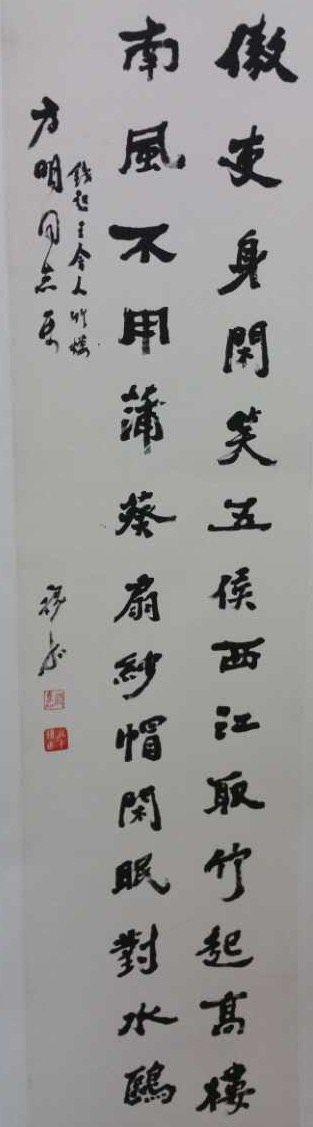 傲吏身閑笑五侯西江取竹起高樓
南風不用蒲葵扇紗帽閑眠對水鷗
錢起王舍人竹樓
方明同志